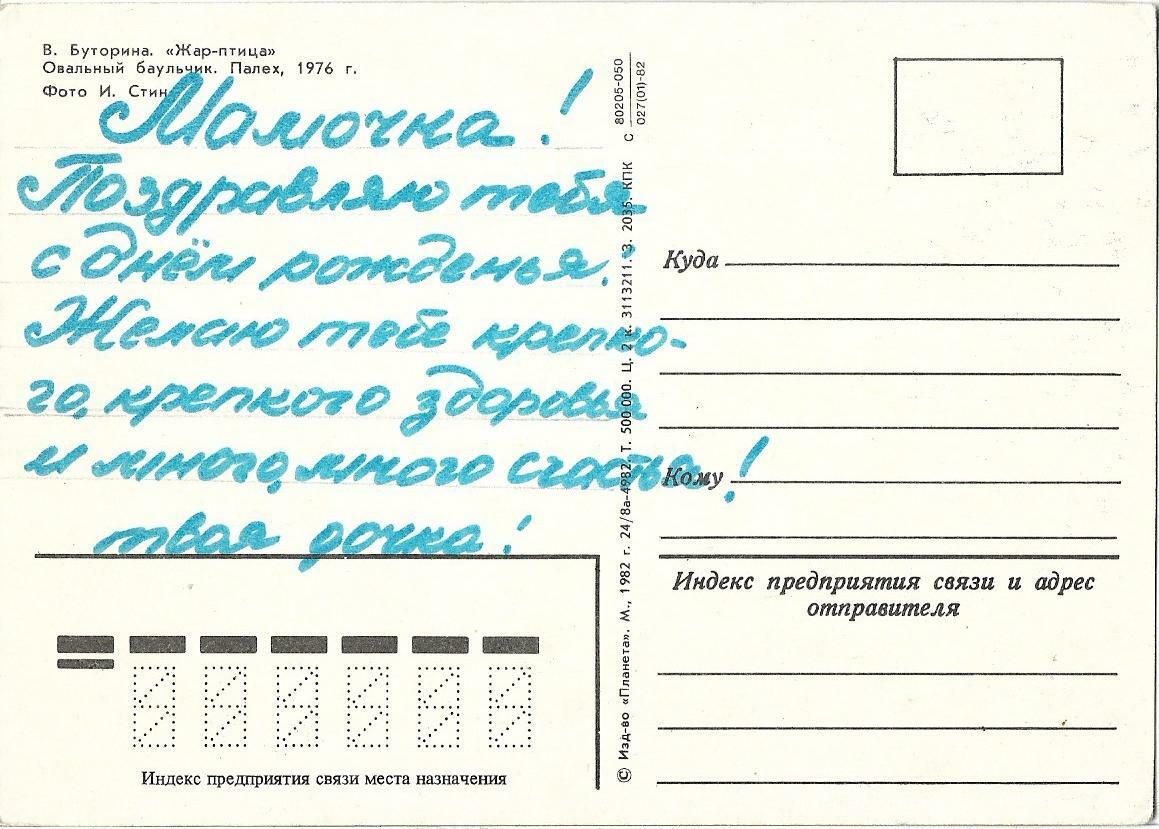 В. Буторина. «Жар-птица»
Овальный баульчик. Палех, 1976 г.
Фото И. Стин
Мамочка!
Поздравляю тебя
с днём рожденья.
Желаю тебе крепко-
го, крепкого здоровья
и много, много счастья!
твая дочка!
Индекс предприятия связи места назначения
© Изд-во «Планета». М., 1982 г. 24/8а-4982. Т. 500 000. Ц. 2 к. 3113211. З. 2035. КПК С 80205-050
027(01)-82
Куда
Кому
Индекс предприятия связи и адрес
отправителя